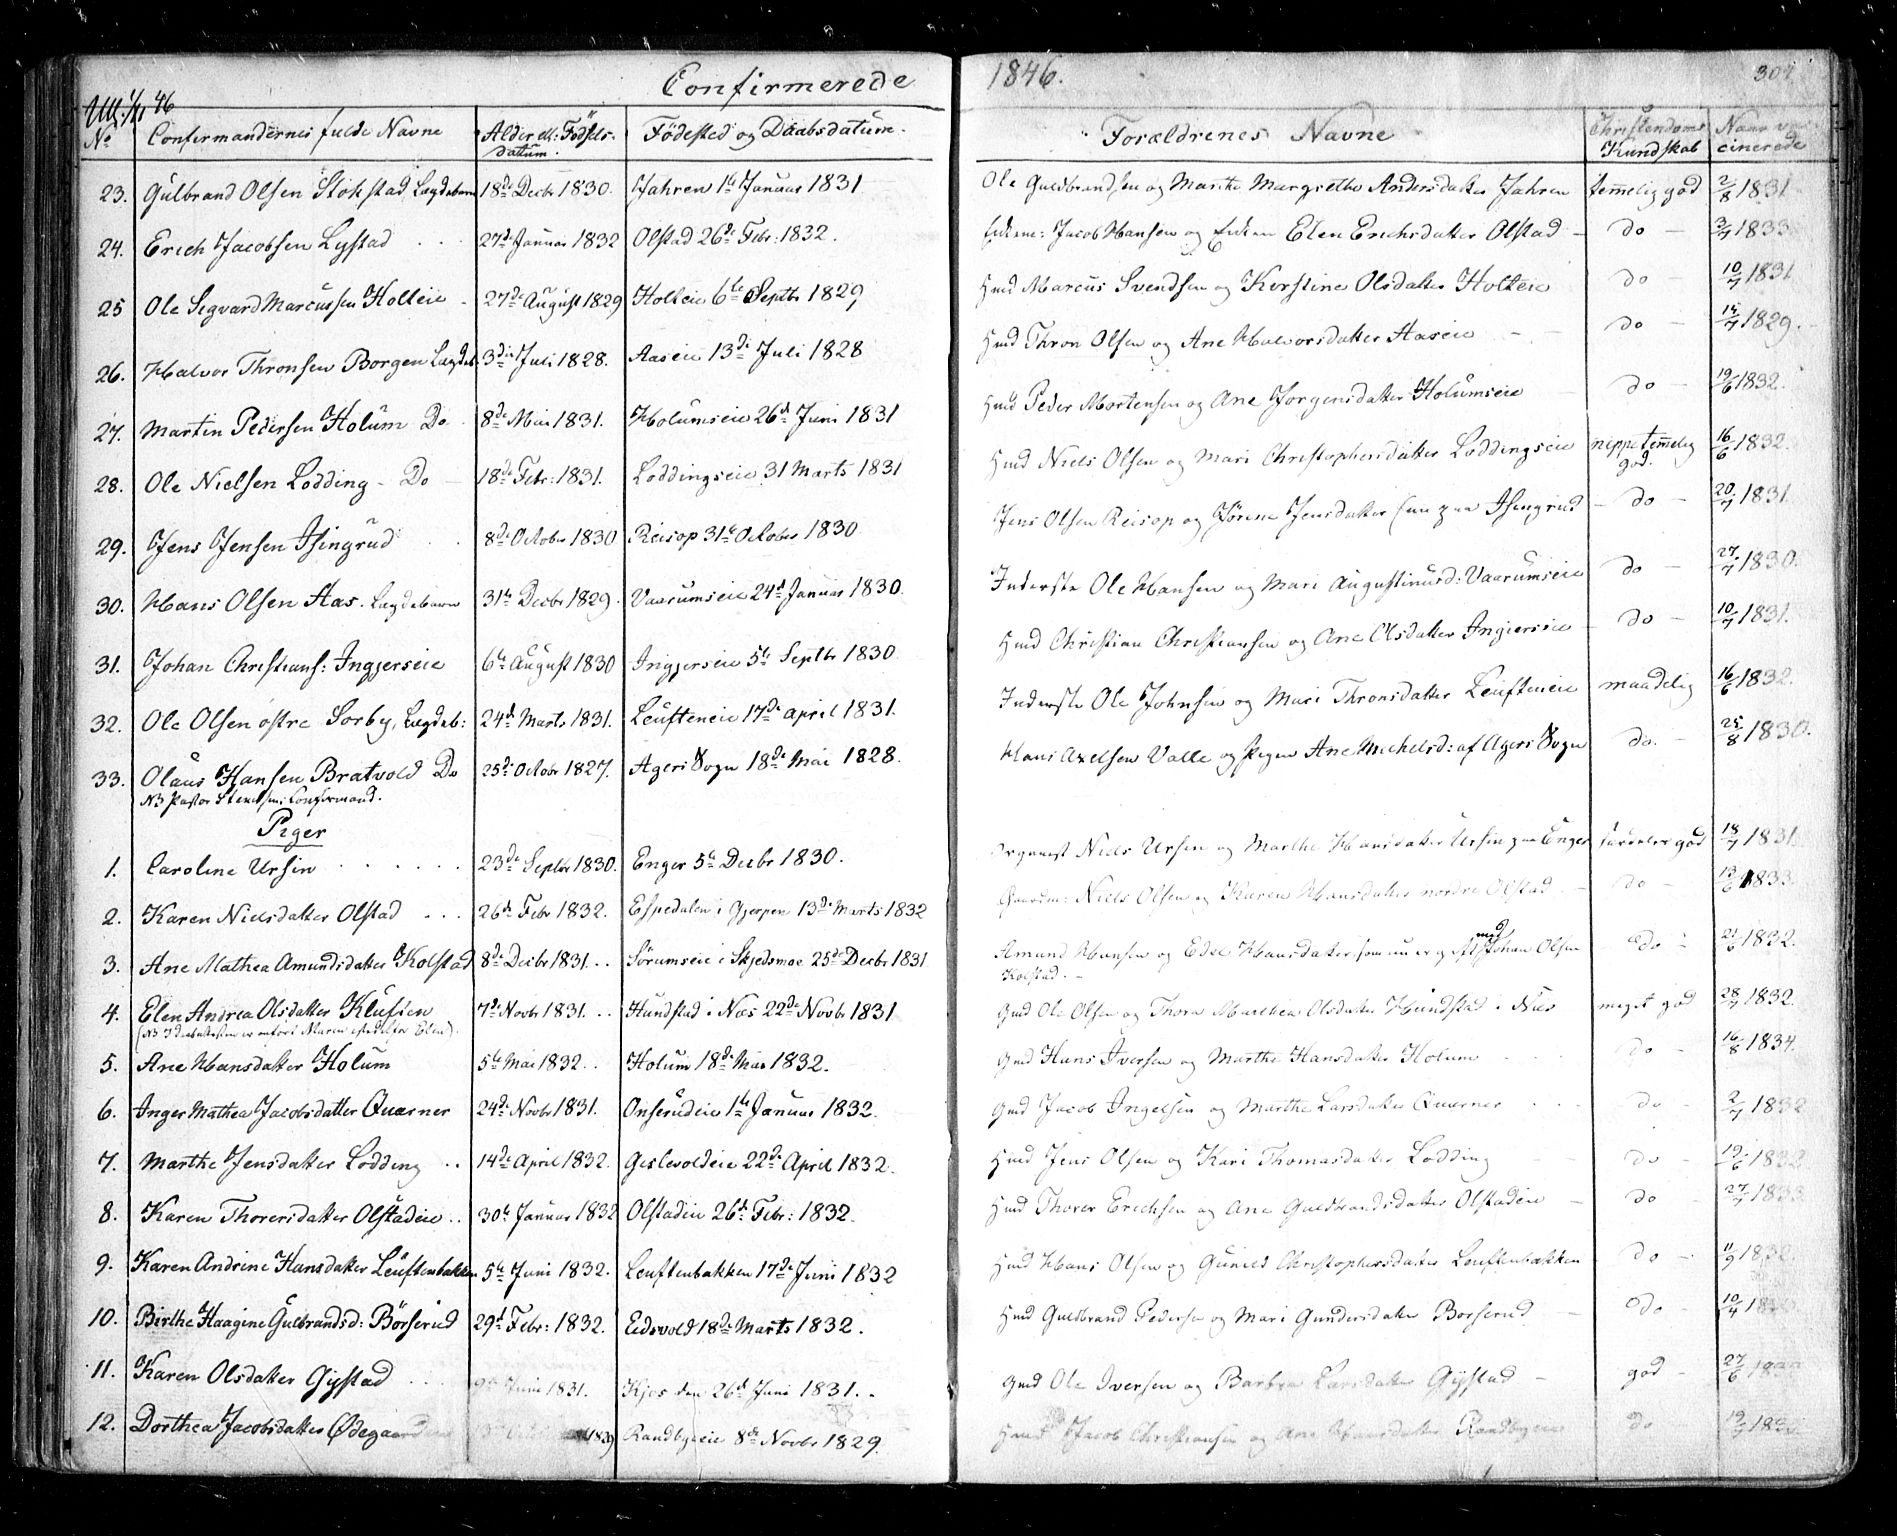 Confirmerede 1846.
Ull: 1/11 46
No Confirmandernes fulde Navne Alder ell: Födsels- datum. Födested og Daabsdatum. Forældrenes Navne Christendoms Kundskab Naar vac- cinerede
23. Gulbrand Olsen Stokstad Lægdebarn 18de Decbr 1830. Jahren 1ste Januar 1831 Ole Guldbrandsen og Marthe Margrethe Andersdatter Jahren temmelig god 2/8 1831
24. Erich Jacobsen Lystad 27de Januar 1832 Olstad 26de Febr: 1832. Jacob Hansen og Elen Erichsdatter Olstad do 3/7 1833
25 Ole Segvard Marcussen Holteie 27de August 1829 Holteie 6te Septbr 1829 Hmd Marcus Svendsen og Kirstine Olsdatter Holteie do 10/7 1831
26. Halvor Thronsen Borgen Lægdeb. 3die Juli 1828. Aaseie 13de Juli 1828 Hmd Thron Olsen og Ane Halvorsdatter Aaseie do 14/7 1829.
27. Martin Pedersen Holum Do 8de Mai 1831. Holumseie 26de Juni 1831 Hmd Peder Mortensen og Ane Jorgensdatter Holumseie do 19/6 1832.
28. Ole Nielsen Lodding Do 18de Febr: 1831. Loddingseie 31 Marts 1831 Hmd Niels Olsen og Mari Christophersdatter Loddingseie neppe temmelig god. 16/6 1832.
29. Jens Jensen Isingrud 8de October 1830 Reisop 31te October 1830 Jens Olsen Reisop og Jörine Jensdatter nu paa Isingrud do 20/7 1831
30. Hans Olsen Aas. Lægdebarn 31te Decbr 1829. Vaarumseie 24de Januar 1830. Inderste Ole Hansen og Mari Augustinusd: Vaarumseie do 27/7 1830.
31. Johan Christians: Ingierseie 6te August 1830 Ingjerseie 5te Septbr 1830. Hmd Christian Christiansen og Ane Olsdatter Ingierseie do 10/7 1831.
32. Ole Olsen östre Sorby, Lægdeb: 24de Marts 1831. Leufteneie 17de April 1831. Inderste Ole Johnsen og Mari Thronsdatter Leufteneie maadelig 16/6 1832.
33. Olaus Hansen Bratvold Do 25de Octobr 1827. Agers Sogn 18de Mai 1828. Hans Axelsen Valle og Pigen Ane Michelsd: af Agers Sogn do. 25/8 1830.
NB Pastor Stenersens Confirmand.
Piger
1. Caroline Ursin 23de Septbr 1830. Enger 5te Decbr 1830. Organist Niels Ursin og Marthe Hansdatter Ursin paa Enger særdeles god 18/7 1831
2. Karen Nielsdatter Olstad 26de Febr 1832. Espedalen i Gjerpen 13de Marts 1832 Gaardm: Niels Olsen og Karen Hansdatter nordre Olstad do 13/6 1833
3. Ane Mathea Amundsdatter Kolstad 8de Decbr 1831. Sörumseie i Skjedsmoe 25de Decbr 1831 Amund Hansen og Edel Hansdatter som nu er gift med Johan Olsen Kolstad. do 21/6 1832.
4. Elen Andrea Olsdatter Klufsen 7de Novbr 1831. Hundstad i Næs 22de Novbr 1831 Gmd Ole Olsen og Thora Marthea Olsdatter Hundstad i Næs meget god 28/7 1832.
(NB I daabslisten er anfört Maren istedetfor Elen).
5. Ane Hansdatter Holum 5te Mai 1832. Holum 18de Mai 1832. Gmd Hans Iversen og Marthe Hansdatter Holum do 16/8 1834.
6. Inger Mathea Jacobsdatter Quærner 24de Novbr 1831. Onserudeie 1ste Januar 1832. Gmd Jacob Ingelsen og Marthe Larsdatter Quærner do 2/7 1832
7. Marthe Jensdatter Lodding 14de April 1832. Geslevoldeie 22de April 1832. Hmd Jens Olsen og Kari Thomasdatter Lodding do 19/6 1832
8. Karen Thorersdatter Olstadeie 30te Januar 1832 Olstadeie 26de Febr: 1832. Hmd Thorer Erichsen og Ane Guldbrandsdatter Olstadeie do 27/7 1833
9. Karen Andrine Hansdatter Leuftenbakken 5te Juni 1832. Leuftenbakken 17de Juni 1832 Hmd Hans Olsen og Gunild Christophersdatter Leuftenbakken do 11/9 1832.
10. Birthe Haagine Gulbrandsd: Börserud 29de Febr: 1832. Eidsvold 18de Marts 1832. Hmd Guldbrand Pedersen og Mari Gundersdatter Börserud do 10/4
11. Karen Olsdatter Gystad 9de Juni 1831. Kjos den 26de Juni 1831. Gmd Ole Iversen og Barbra Larsdatter Gystad god 27/6
12. Dorthea Jacobsdatter Ödegaarden 1829 Randbyeie 8de Novbr 1829. Hmd Jacob Christiansen og Ane Hansdatter Randbyeie do 19/7